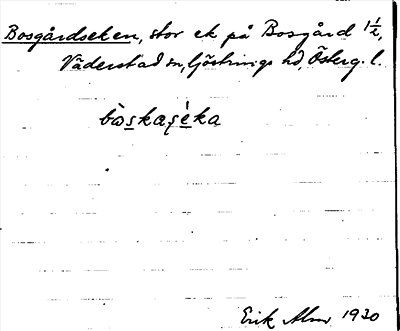 Bosgårdseken, stor ek på Bosgård 1/2,
Väderstad sn, Göstrings hd, Österg. l.
bòskaşèka
Erik Abrw 1930